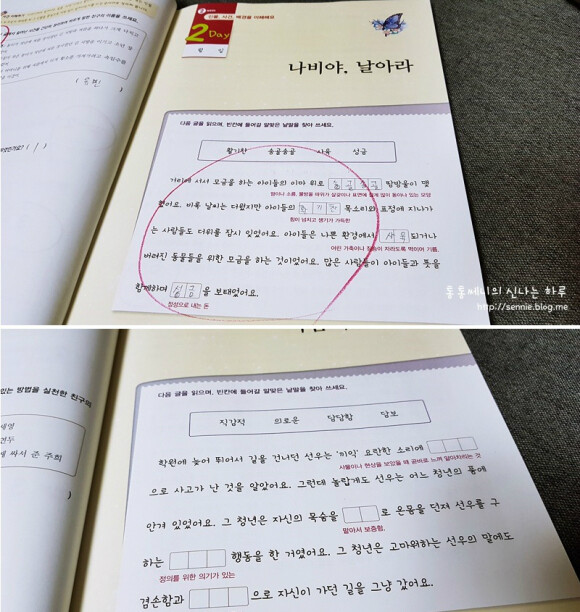 인물, 사건, 배경을 이해해요
2 Day
월 일
나비야, 날아라
다음 글을 읽으며, 빈칸에 들어갈 알맞은 낱말을 찾아 쓰세요.
활기찬 송골송골 사육 성금
거리에 서서 모금을 하는 아이들의 이마 위로 송골송골 땀방울이 맺
땀이나 소름, 물방울 따위가 살갗이나 표면에 잘게 많이 돋아나 있는 모양
혔어요. 비록 날씨는 더웠지만 아이들의 활기찬 목소리와 표정에 지나가
힘이 넘치고 생기가 가득한
는 사람들도 더위를 잠시 잊었어요. 아이들은 나쁜 환경에서 사육되거나
어린 가축이나 짐승이 자라도록 먹이어 기름.
버려진 동물들을 위한 모금을 하는 것이었어요. 많은 사람들이 아이들과 뜻을
함께하며 성금을 보태었어요.
정성으로 내는 돈
통통쎄니의 신나는 하루
http://sennie.blog.me
있는 방법을 실천한 친구의
에 싸서 준 주희
다음 글을 읽으며, 빈칸에 들어갈 알맞은 낱말을 찾아 쓰세요.
직감적 의로운 담담함 담보
학원에 늦어 뛰어서 길을 건너던 선우는 '끼익' 요란한 소리에
사물이나 현상을 보았을 때 곧바로 느껴 알아차리는 것
으로 사고가 난 것을 알았어요. 그런데 놀랍게도 선우는 어느 청년의 품에
안겨 있었어요. 그 청년은 자신의 목숨을 로 온몸을 던져 선우를 구
맡아서 보증함.
하는 행동을 한 거였어요. 그 청년은 고마워하는 선우의 말에도
정의를 위한 의기가 있는
겸손함과 으로 자신이 가던 길을 그냥 갔어요.